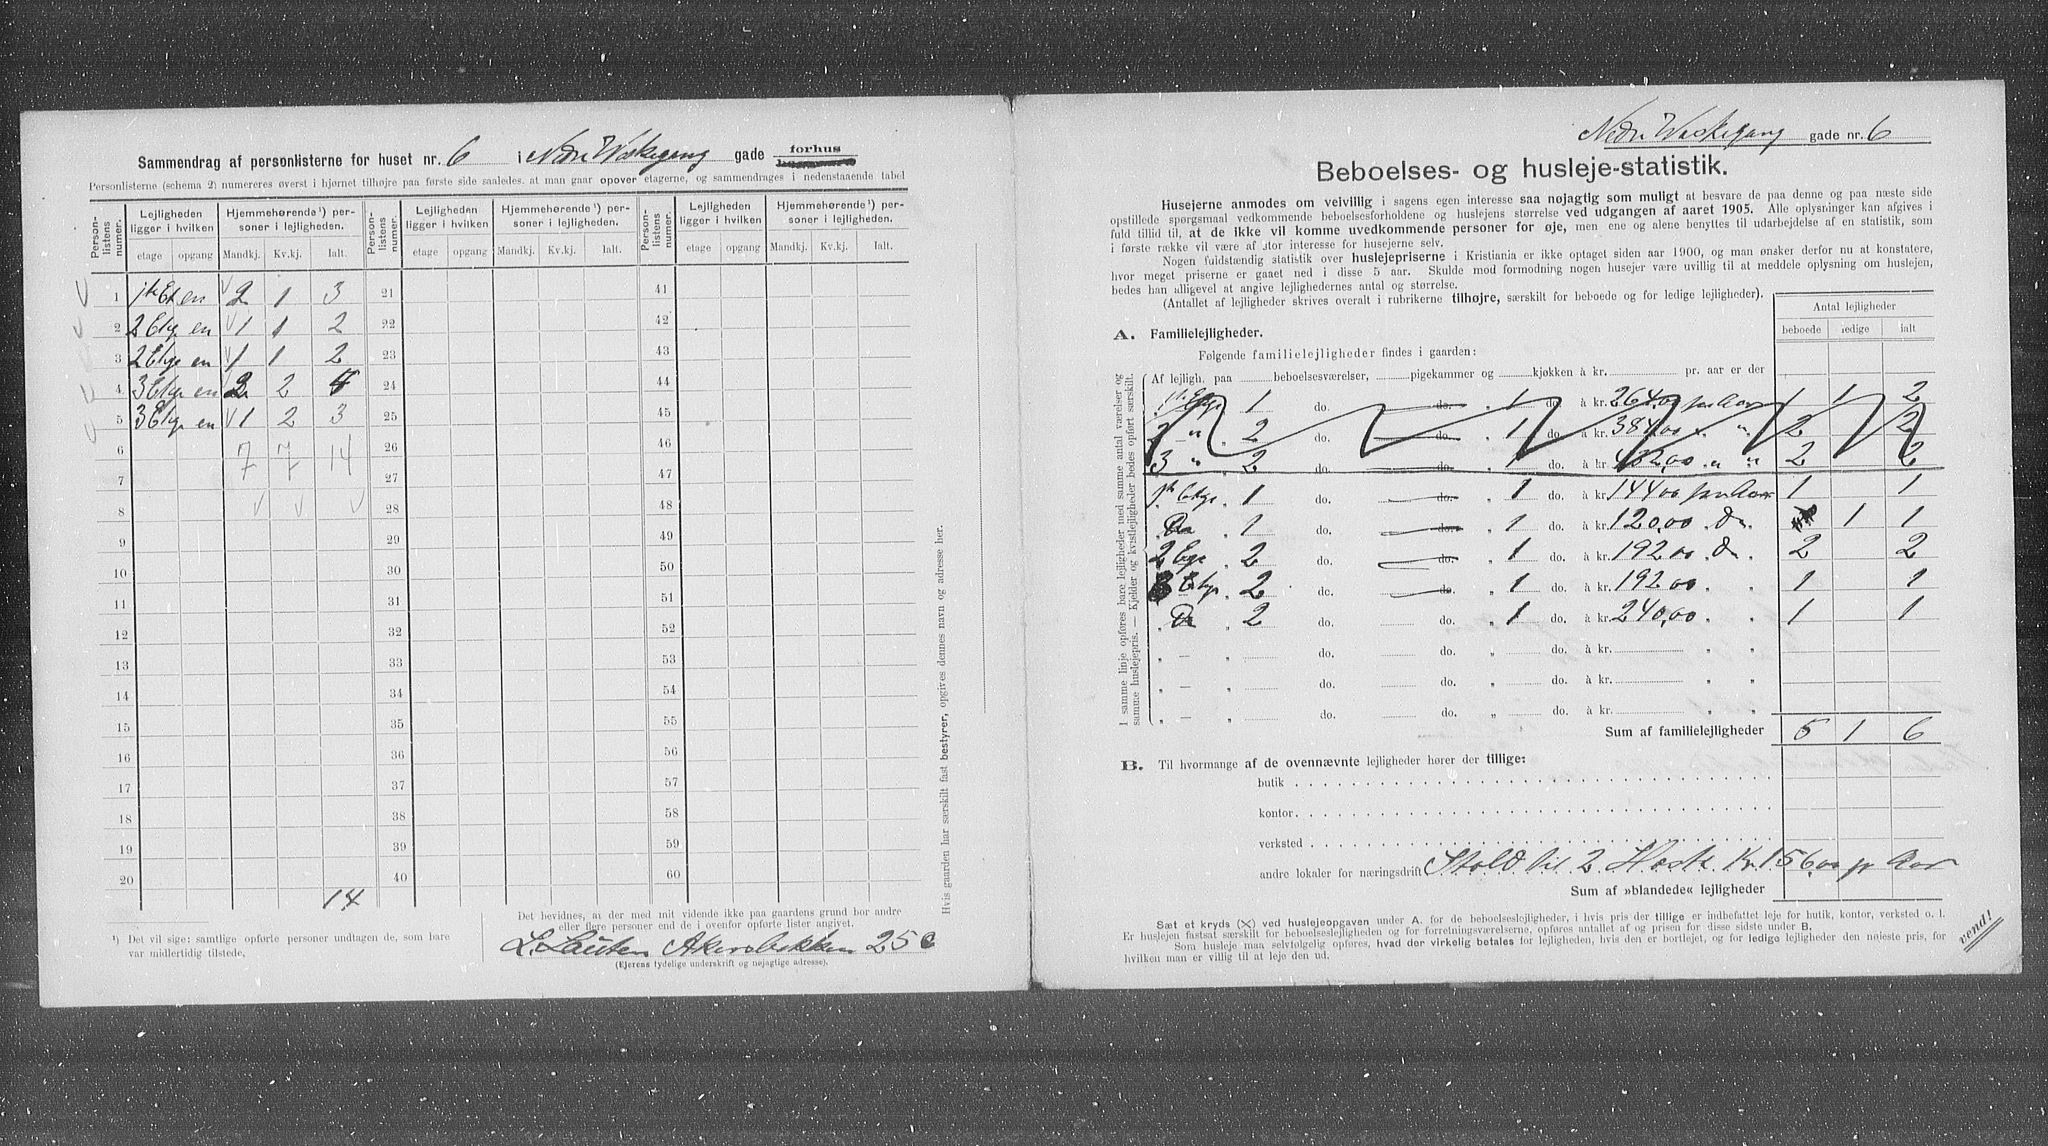 Sammendrag af personlisterne for huset nr. 6 i Nedre Vaskegang gade forhus
Personlisterne (schema 2) numereres øverst i hjørnet tilhøjre paa første side saaledes, at man gaar opover etagerne, og sammendrages i nedenstaaende tabel
Person-listens numer. Lejligheden ligger i hvilken Hjemmehørende ¹) personer i lejligheden. Person-listens numer. Lejligheden ligger i hvilken Hjemmehørende ¹) personer i lejligheden. Person-listens numer. Lejligheden ligger i hvilken Hjemmehørende ¹) personer i lejligheden.
etage opgang Mandkj. Kv.kj. Ialt. etage opgang Mandkj. Kv.kj. Ialt. etage opgang Mandkj. Kv.kj. Ialt.
1 1ste Et en 2 1 3 21 41
2 2 Etg en 1 1 2 22 42
3 2 Etge en 1 1 2 23 43
4 3 Etge en 2 2 4 24 44
5 3 Etge en 1 2 3 25 45
6 7 7 14 26 46
7 27 47
8 28 48
9 29 49
10 30 50
11 31 51
12 32 52
13 33 53
14 34 54
15 35 55
16 36 56
17 37 57
18 38 58
19 39 59
20 14 40 60
¹) Det vil sige: samtlige opførte personer undtagen de, som bare var midlertidig tilstede.
Det bevidnes, at der med mit vidende ikke paa gaardens grund bor andre
eller flere personer end de i ovenfor opførte lister angivet.
L. Lauten Akersbekken 25 c
(Ejerens tydelige underskrift og nøjagtige adresse).
Hvis gaarden har særskilt fast bestyrer, opgives dennes navn og adresse her.
Nedre Vaskegang gade nr. 6
Beboelses- og husleje-statistik.
Husejerne anmodes om velvillig i sagens egen interesse saa nøjagtig som muligt at besvare de paa denne og paa næste side
opstillede spørgsmaal vedkommende beboelsesforholdene og huslejens størrelse ved udgangen af aaret 1905. Alle oplysninger kan afgives i
fuld tillid til, at de ikke vil komme uvedkommende personer for øje, men ene og alene benyttes til udarbejdelse af en statistik, som
i første række vil være af stor interesse for husejerne selv.
Nogen fuldstændig statistik over huslejepriserne i Kristiania er ikke optaget siden aar 1900, og man ønsker derfor nu at konstatere,
hvor meget priserne er gaaet ned i disse 5 aar. Skulde mod formodning nogen husejer være uvillig til at meddele oplysning om huslejen,
bedes han alligevel at angive lejlighedernes antal og størrelse.
(Antallet af lejligheder skrives overalt i rubrikerne tilhøjre, særskilt for beboede og for ledige lejligheder).
Antal lejligheder
beboede ledige ialt
A. Familielejligheder.
Følgende familielejligheder findes i gaarden:
I samme linje opføres bare lejligheder med samme antal værelser og samme huslejepris. — Kjelder og kvistlejligheder bedes opført særskilt.
Af lejligh. paa beboelsesværelser, pigekammer og kjøkken à kr. pr. aar er der
1ste Etge 1 do. do. 1 do. à kr. 264,00 pr Aar 1 1 2
2 " 2 do. do. 1 do. à kr. 384,00 " " 2 2
3 " 2 do. do. 1 do. à kr. 432,00 " " 2 2
1ste Etge 1 do. do. 1 do. à kr. 144,00 pr Aar 1 1
Do 1 do. do. 1 do. à kr. 120,00 Do 1 1
2 Etge 2 do. do. 1 do. à kr. 192,00 Do 2 2
3 Etge 2 do. do. 1 do. à kr. 192,00 " " 1 1
Do 2 do. do. 1 do. à kr. 240,00 " " 1 1
" — " do. do. " do. à kr. " "
" — " do. do. " do. à kr. " "
" — " do. do. " do. à kr. " "
Sum af familielejligheder 5 1 6
B. Til hvormange af de ovennævnte lejligheder hører der tillige:
butik
kontor
verksted
andre lokaler for næringsdrift Stald til 2 Heste Kr. 156,00 pr Aar
Sum af »blandede« lejligheder
Sæt et kryds (×) ved huslejeopgaven under A. for de beboelseslejligheder, i hvis pris der tillige er indbefattet leje for butik, kontor, verksted o. l.
Er huslejen fastsat særskilt for beboelseslejligheden og for forretningsværelserne, opføres antallet af og prisen for disse sidste under B.
Som husleje maa selvfølgelig opføres, hvad der virkelig betales for lejligheden, hvis den er bortlejet, og for ledige lejligheder den nøjeste pris, for
hvilken man er villig til at leje den ud.
vend!